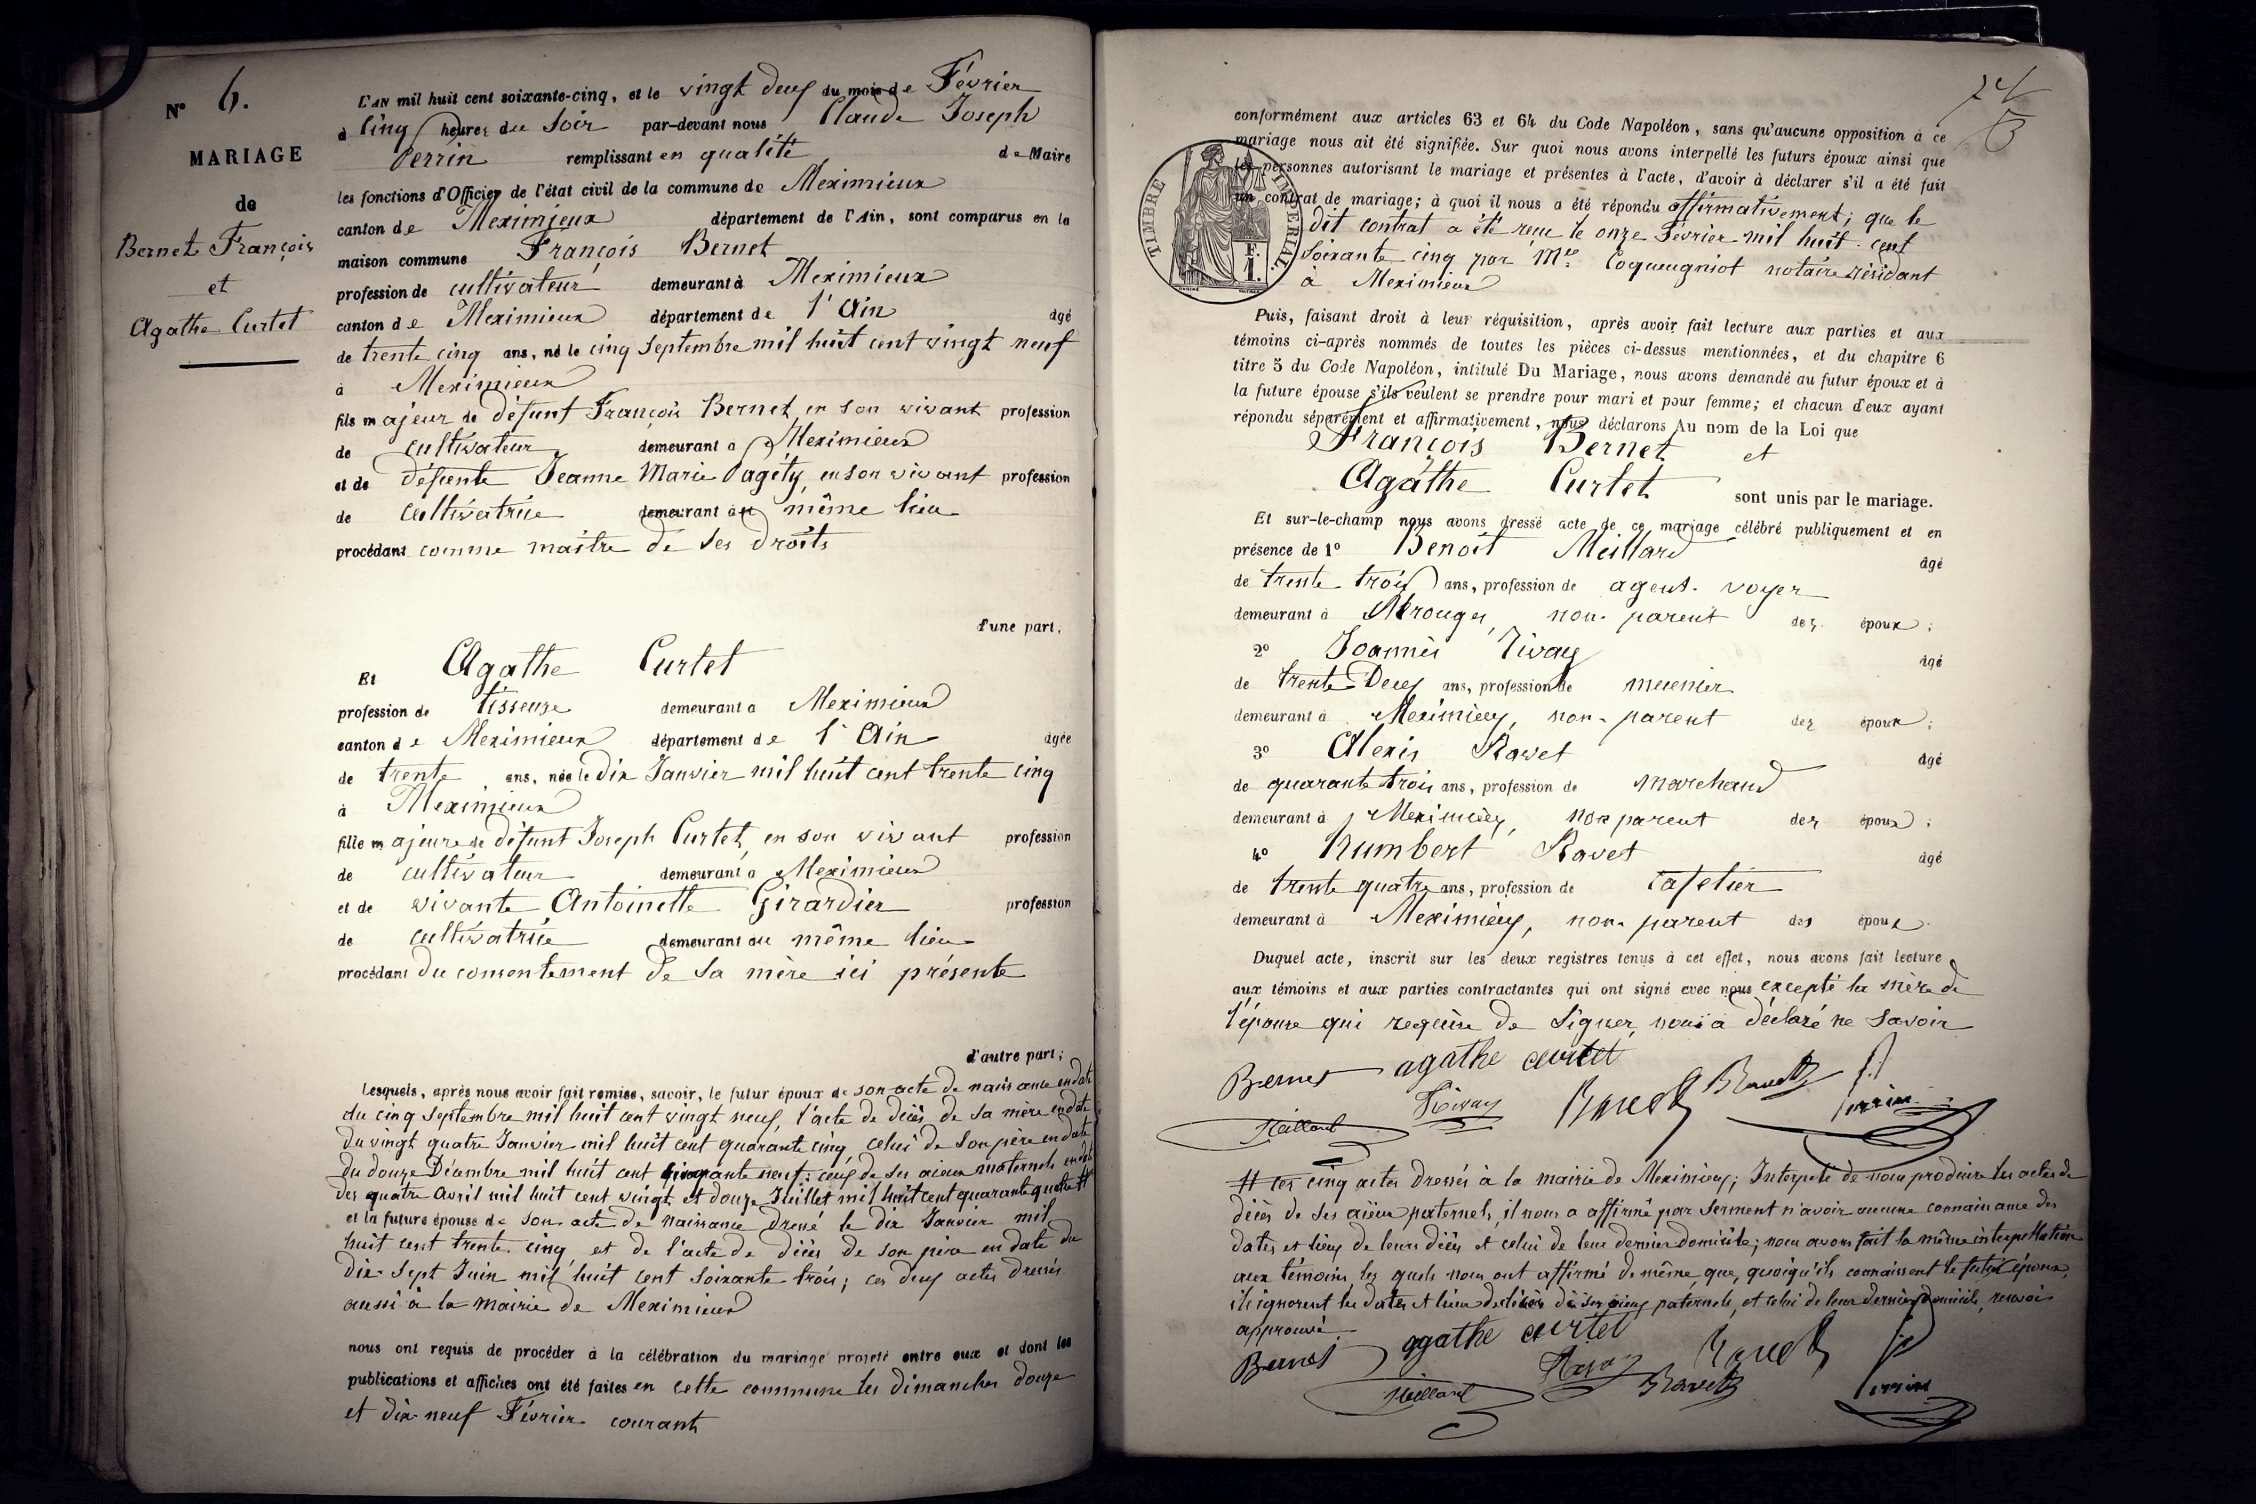 N° 6.
MARIAGE
de
Bernet François
et
Agathe Curtet
L'AN mil huit cent soixante-cinq, et le vingt deux du mois de Février
à Cinq heures du Soir par-devant nous Claude Joseph
Perrin remplissant en qualité de Maire
les fonctions d'Officier de l'état civil de la commune de Meximieux
canton de Meximieux département de l'Ain, sont comparus en la
maison commune François Bernet
profession de cultivateur demeurant à Meximieux
canton de Meximieux département de l'Ain âgé
de trente cinq ans, né le cinq Septembre mil huit cent vingt neuf
à Meximieux
fils majeur de défunt François Bernet, en son vivant profession
de cultivateur demeurant à Meximieux
et de défunte Jeanne Marie Pagéty, en son vivant profession
de cultivatrice demeurant au même lieu
procédant comme maître de ses droits
d'une part,
Et Agathe Curtet
profession de tisseuse demeurant à Meximieux
canton de Meximieux département de l'Ain âgée
de trente ans, née le dix Janvier mil huit cent trente cinq
à Meximieux
fille majeure de défunt Joseph Curtet, en son vivant profession
de cultivateur demeurant à Meximieux
et de vivante Antoinette Girardier profession
de cultivatrice demeurant au même lieu
procédant du consentement de sa mère ici présente
d'autre part;
Lesquels, après nous avoir fait remise, savoir, le futur époux de son acte de naissance en date
du cinq Septembre mil huit cent vingt neuf, l'acte de décès de sa mère en date
du vingt quatre Janvier mil huit cent quarante cinq, celui de son père en date
du douze Décembre mil huit cent cinquante neuf; ceux de ses aïeux maternels en date
des quatre Avril mil huit cent vingt et douze Juillet mil huit cent quarante quatre #
et la future épouse de son acte de naissance dressé le dix Janvier mil
huit cent trente cinq et de l'acte de décès de son père en date du
dix-sept Juin mil huit cent soixante trois; ces deux actes dressés
aussi à la mairie de Meximieux
nous ont requis de procéder à la célébration du mariage projeté entre eux et dont les
publications et affiches ont été faites en cette commune les dimanches douze
et dix neuf Février courant
conformément aux articles 63 et 64 du Code Napoléon, sans qu'aucune opposition à ce
mariage nous ait été signifiée. Sur quoi nous avons interpellé les futurs époux ainsi que
les personnes autorisant le mariage et présentes à l'acte, d'avoir à déclarer s'il a été fait
un contrat de mariage; à quoi il nous a été répondu affirmativement; que le
dit contrat a été reçu le onze Février mil huit cent
soixante cinq par Me Coqueugniot notaire résidant
à Meximieux
TIMBRE IMPERIAL.
F.
1.
Puis, faisant droit à leur réquisition, après avoir fait lecture aux parties et aux
témoins ci-après nommés de toutes les pièces ci-dessus mentionnées, et du chapitre 6
titre 5 du Code Napoléon, intitulé Du Mariage, nous avons demandé au futur époux et à
la future épouse s'ils veulent se prendre pour mari et pour femme; et chacun d'eux ayant
répondu séparément et affirmativement, nous déclarons Au nom de la Loi que
François Bernet et
Agathe Curtet sont unis par le mariage.
Et sur-le-champ nous avons dressé acte de ce mariage célébré publiquement et en
présence de 1° Benoit Meillard âgé
de trente trois ans, profession de agent-voyer
demeurant à Pérouges, non-parent des époux;
2° Joannès Tivay âgé
de trente Deux ans, profession de meunier
demeurant à Meximieux, non-parent des époux;
3° Alexis Ravet âgé
de quarante trois ans, profession de marchand
demeurant à Meximieux, non parent des époux;
4° Humbert Ravet âgé
de trente quatre ans, profession de cafetier
demeurant à Meximieux, non-parent des époux.
Duquel acte, inscrit sur les deux registres tenus à cet effet, nous avons fait lecture
aux témoins et aux parties contractantes qui ont signé avec nous excepté la mère de
l'épouse qui requise de signer, nous a déclaré ne savoir
Bernet agathe curtet
Meillard Tivay Ravet Ravet Perrin
# ces cinq actes dressés à la mairie de Meximieux; Interpelé de nous produire les actes de
décès de ses aïeux paternels, il nous a affirmé par serment n'avoir aucune connaissance des
dates et lieux de leurs décès et celui de leur dernier domicile; nous avons fait la même interpellation
aux témoins les quels nous ont affirmé de même que, quoiqu'ils connaissent le futur époux,
ils ignorent les dates et lieux des décès de ses aïeux paternels, et celui de leur dernier domicile, renvoi
approuvé.
Bernet agathe curtet
Meillard Tivay Ravet Ravet Perrin